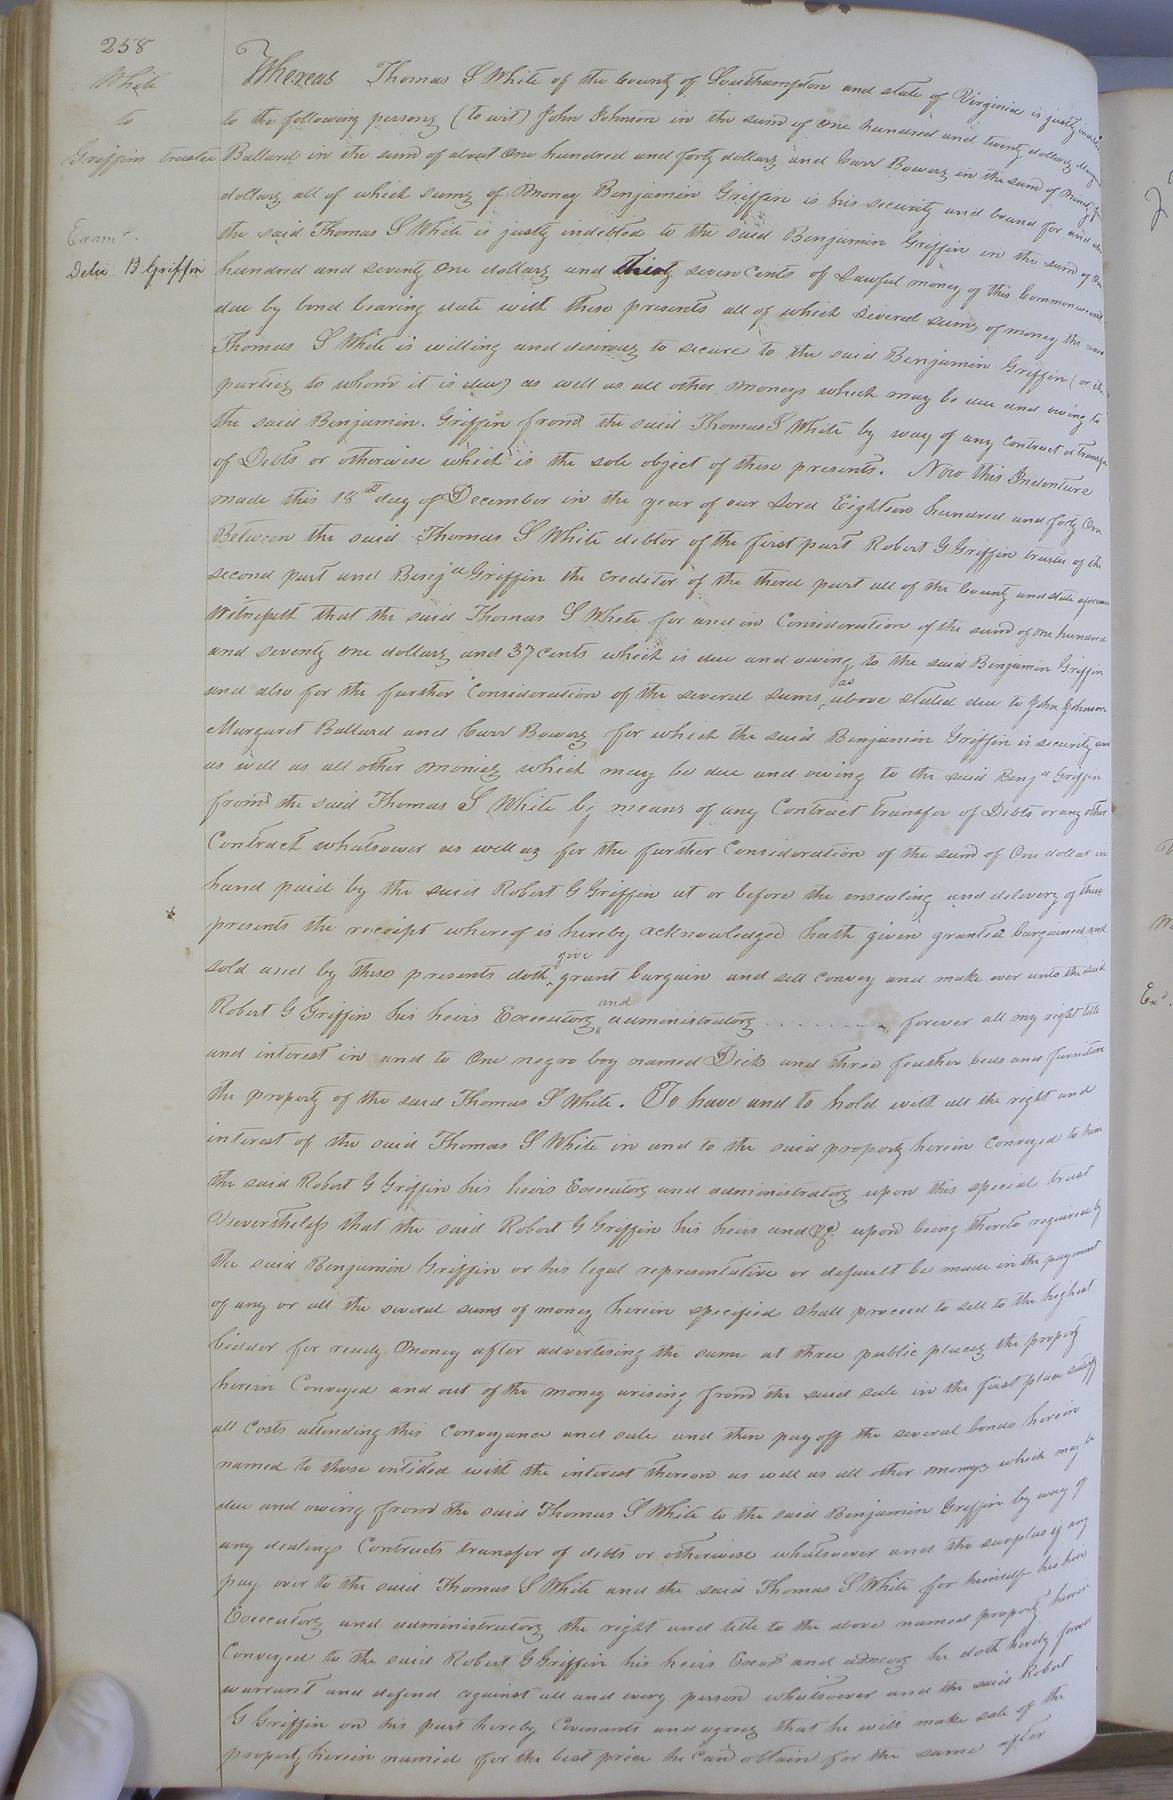 258
White
to
Griffin trustee
Exam.d
Deliv. B Griffin
Whereas Thomas S White of the County of Southampton and state of Virginia is justly
to the following persons (to wit) John Johnson in the sum of one hundred and twenty dollars
Ballard in the sum of about One hundred and forty dollars and Carr Bowers in the sum of
dollars all of which sums of money Benjamin Griffin is his security and bound for and
the said Thomas S White is justly indebted to the said Benjamin Griffin in the sum of One
hundred and seventy one dollars and thirty seven Cents of Lawful money of this Commonwealth
due by bond bearing date with these presents all of which several sums of money the
Thomas S White is willing and desirous to secure to the said Benjamin Griffin (or the
parties to whom it is due) as well as all other moneys which may be due and owing to
the said Benjamin. Griffin from the said Thomas S White by way of any contract or transfer
of Debts or otherwise which is the sole object of these presents. Now this Indenture
made this 18th day of December in the year of our Lord Eighteen hundred and forty One
Between the said Thomas S White debtor of the first part Robert G Griffin trustee of the
second part and Benja Griffin the creditor of the third part all of the County and state
Witnesseth that the said Thomas S White for and in Consideration of the sum of one hundred
and seventy one dollars and 37 cents which is due and owing to the said Benjamin Griffin
and also for the further Consideration of the several sums as above stated due to John Johnson
Margaret Ballard and Carr Bowers for which the said Benjamin Griffin is security
as well as all other monies which may be due and owing to the said Benja Griffin
from the said Thomas S White by means of any Contract transfer of Debts or any other
Contract whatsoever as well as for the further Consideration of the sum of One dollar in
hand paid by the said Robert G Griffin at or before the ensealing and delivery of these
presents the receipt whereof is hereby acknowledged hath given granted bargained and
sold and by these presents doth give grant bargain and sell convey and make over unto the said
Robert G Griffin his heirs Executors and administrators . . . . . . . . . forever all my right title
and interest in and to One negro boy named Dick and three feather beds and furniture
the property of the said Thomas S White. To have and to hold with all the right and
interest of the said Thomas S White in and to the said property herein Conveyed to him
the said Robert G Griffin his heirs Executors and administrators upon this special trust
Nevertheless that the said Robert G Griffin his heirs and &c. upon being thereto required by
the said Benjamin Griffin or his legal representative or default be made in the payment
of any or all the several sums of money herein specified shall proceed to sell to the highest
bidder for ready money after advertising the same at three public places the property
herein Conveyed and out of the money arising from the said sale in the first place satisfy
all Costs attending this Conveyance and sale and then pay off the several bonds herein
named to those entitled with the interest thereon as well as all other moneys which may be
due and owing from the said Thomas S White to the said Benjamin Griffin by way of
any dealings Contracts transfer of debts or otherwise whatsoever and the surplus if any
pay over to the said Thomas S White and the said Thomas S White for himself his heirs
Executors and administrators the right and title to the above named property herein
Conveyed to the said Robert G Griffin his heirs Exors and admors he doth hereby forever
warrant and defend against all and every person whatsoever and the said Robert
G Griffin on his part hereby Covenants and agrees that he will make sale of the
property herein named for the best price he can obtain for the same after